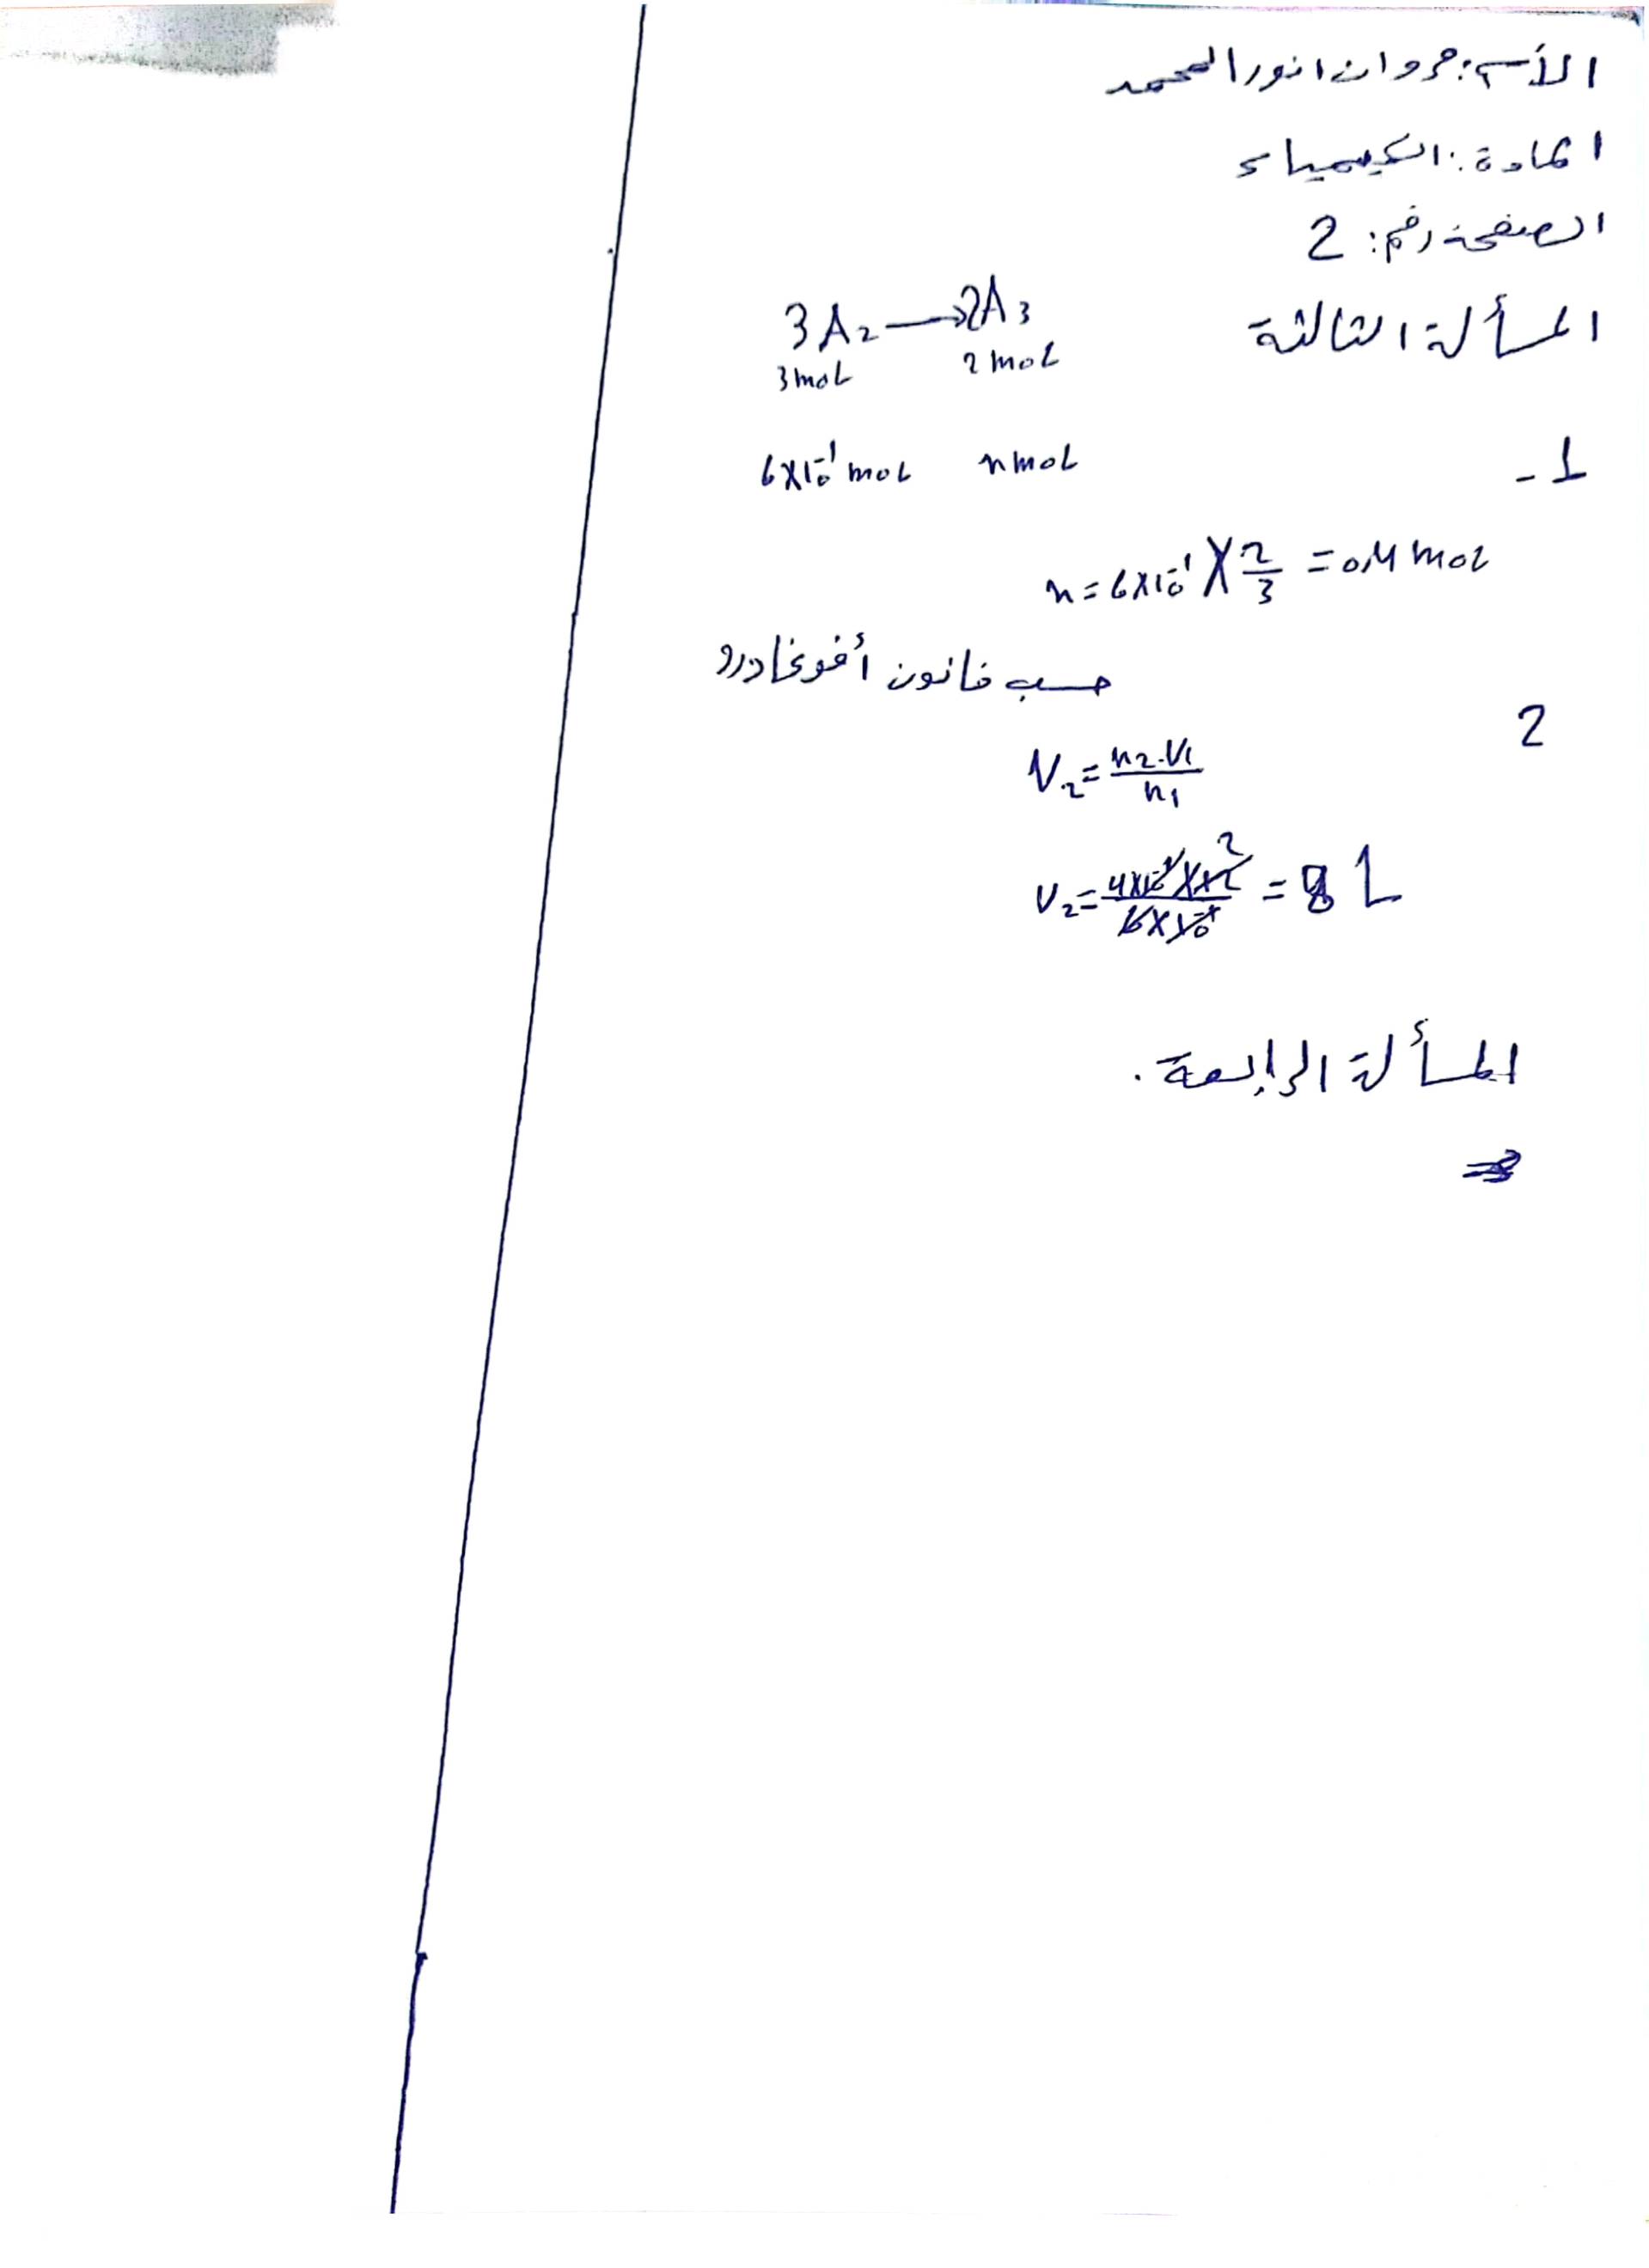 الأسم: مروان انور المحمد
المادة: الكيمياء
الصفحة رقم: 2
المسألة الثالثة
3A₂ → 2A₃
3mol 2mol
1-
6×10⁻¹ mol nmol
n = 6×10⁻¹ × 2/3 = 0,4 mol
حسب قانون أفوغادرو
2
V₂ = n₂.V₁/n₁
= 8 L
المسألة الرابعة.